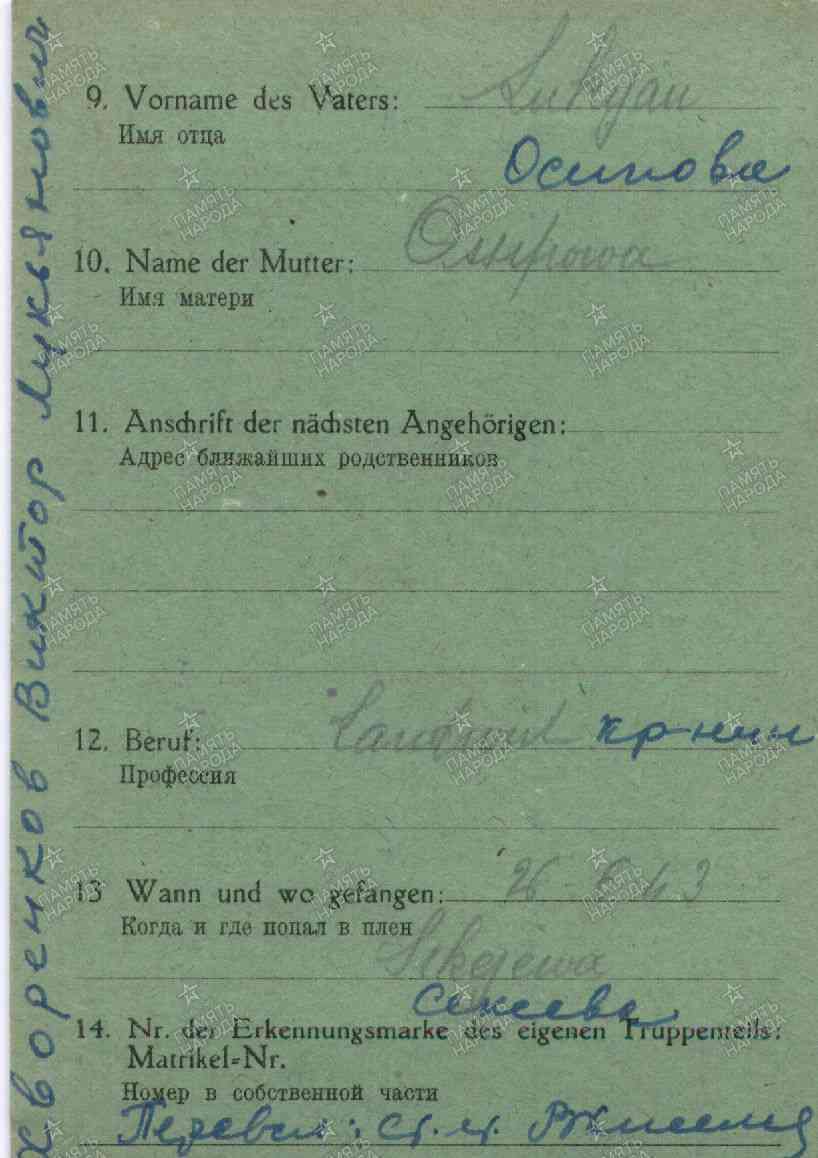 9. Vorname des Vaters: Lukjan
Имя отца
Осипова
10. Name der Mutter: Ossipowa
Имя матери
11. Anschrift der nächsten Angehörigen:
Адрес ближайших родственников
12. Beruf: Landwirt кр-нин
Профессия
13 Wann und wo gefangen: 26-6 43
Когда и где попал в плен
Sekejewa
Секеева
14. Nr. der Erkennungsmarke des eigenen Truppenteils:
Matrikel=Nr.
Номер в собственной части
Перевел:
Виктор Лукьянович
ПАМЯТЬ НАРОДА